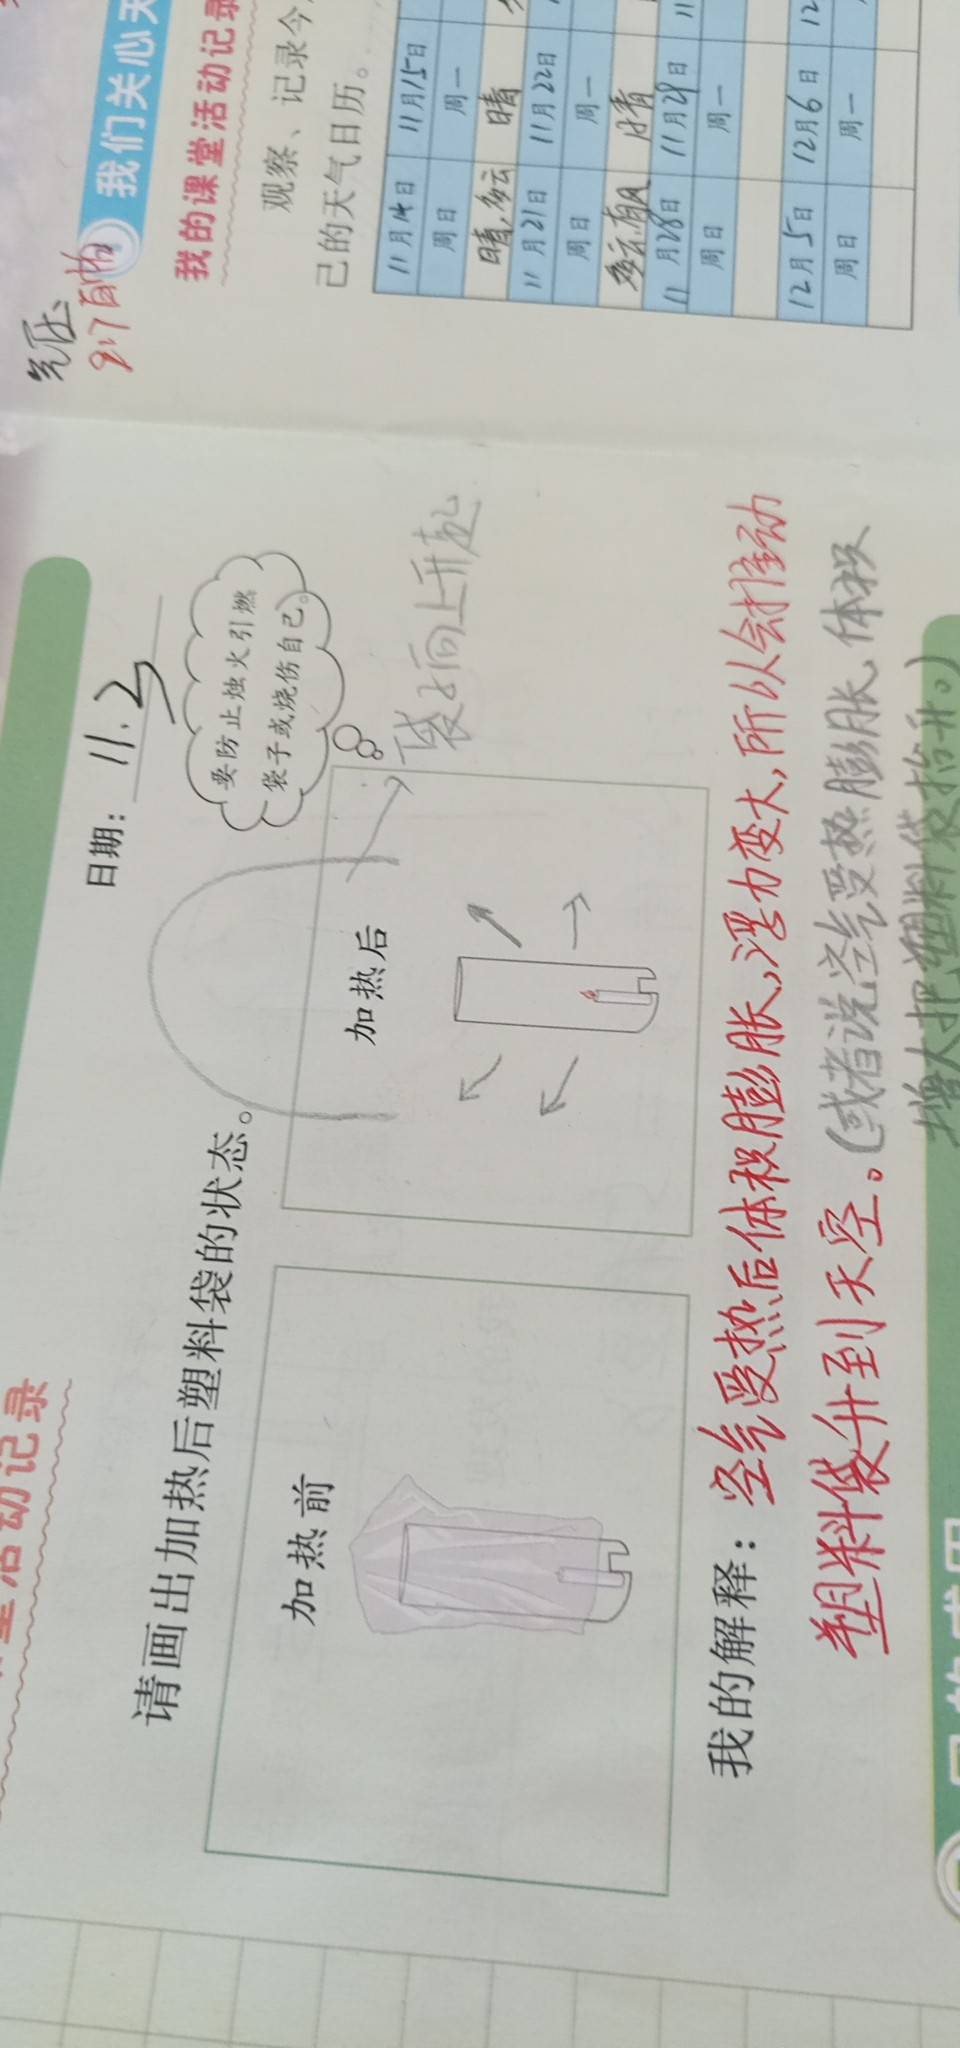 我们关心天
我的课堂活动记录
观察、记录今
己的天气日历。
11月14日 11月15日
周日 周一
晴,多云 晴
11月21日 11月22日
周日 周一
多云,有风 晴
11月28日 11月29日
周日 周一
12月5日 12月6日
周日 周一
活动记录
日期: 11.2
请画出加热后塑料袋的状态。
要防止烛火引燃
袋子或烧伤自己。
加热前
加热后
袋子向上升起
我的解释: 空气受热后体积膨胀,浮力变大,所以会推动
塑料袋升到天空。(或者说空气受热膨胀,体积
增大把塑料袋抬升。)